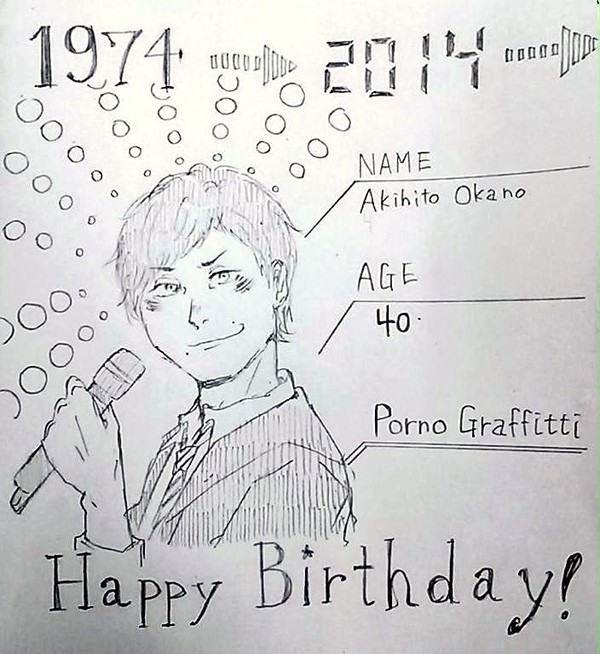 1974 2014
NAME
Akihito Okano
AGE
40
Porno Graffitti
Happy Birthday!